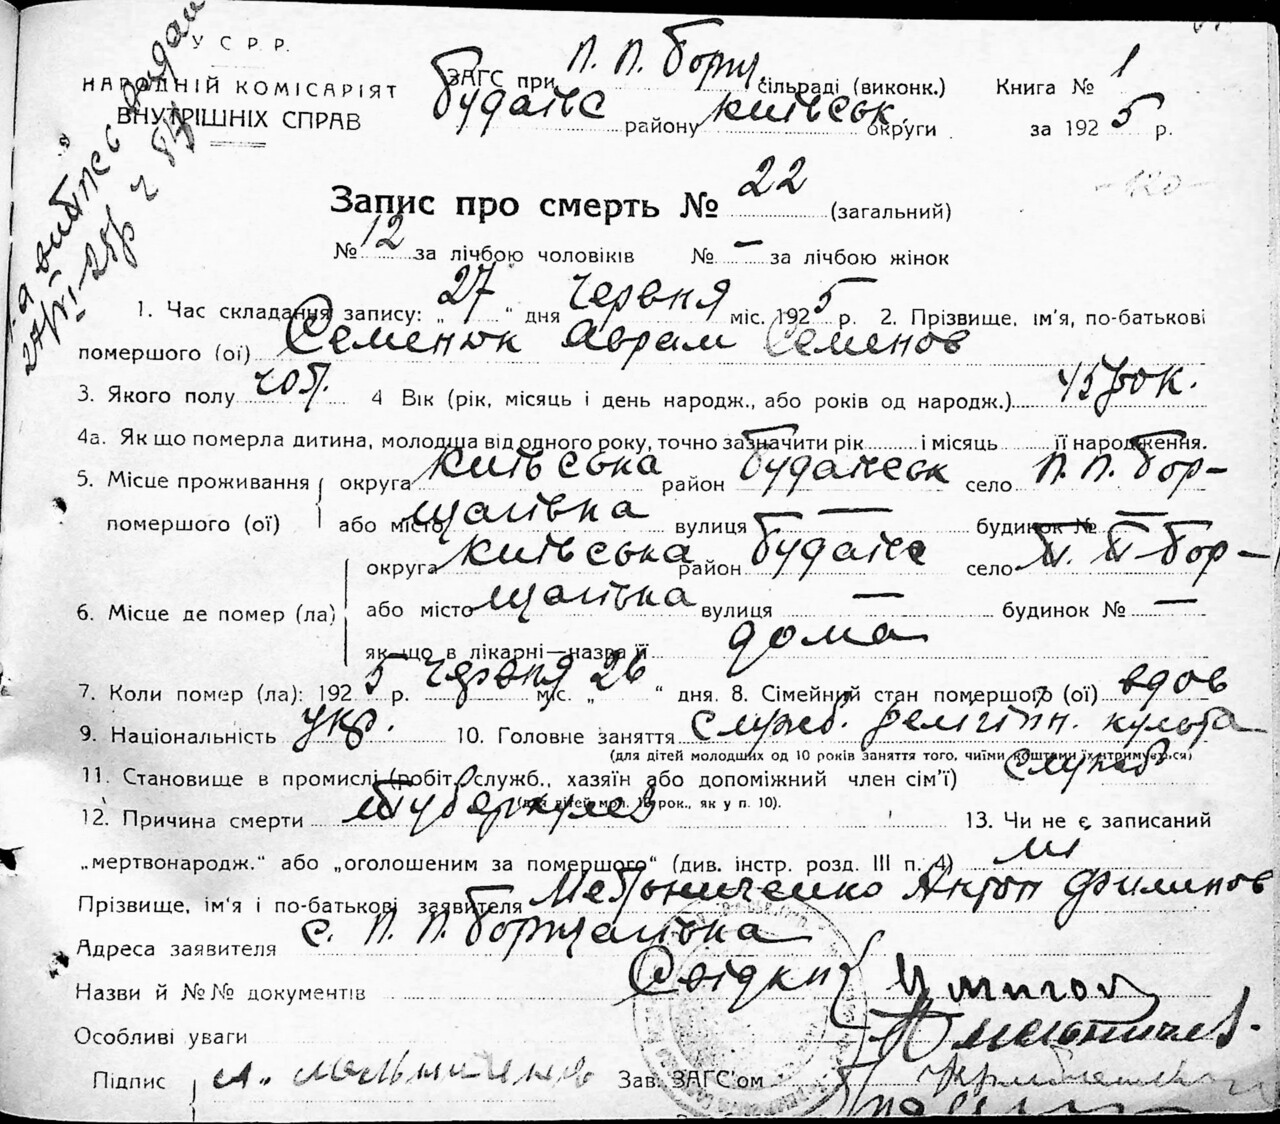 У С Р Р.
НАРОДНІЙ КОМІСАРІЯТ
ВНУТРІШНІХ СПРАВ
ЗАГС при П. П. Борщ. сільраді (виконк.)
Будаївс району Київськ. округи
Книга № 1
за 1925 р.
Запис про смерть № 22 (загальний)
№ 12 за лічбою чоловіків № — за лічбою жінок
1. Час складання запису: „27“ дня червня міс. 1925 р. 2. Прізвище, ім'я, по-батькові
помершого (ої) Семенюк Аврам Семенов
3. Якого полу чол. 4 Вік (рік, місяць і день народж., або років од народж.) 45 рок.
4а. Як що померла дитина, молодша від одного року, точно зазначити рік і місяць її народження.
5. Місце проживання помершого (ої)
округа Київська район Будаївськ село П. П. Бор-
або місто щагівка вулиця — будинок № —
6. Місце де помер (ла)
округа Київська район Будаївс село П. П Бор-
або місто щагівка вулиця — будинок № —
як що в лікарні—назва її дома
7. Коли помер (ла): 1925 р. червня міс. „26“ дня. 8. Сімейний стан помершого (ої) вдов
9. Національність укр. 10. Головне заняття служб. релігійн. культа
(для дітей молодших од 10 років заняття того, чиїми коштами їх утримується)
11. Становище в промислі (робіт., служб., хазяїн або допоміжний член сім'ї) служб
(для дітей мол. 10 рок., як у п. 10).
12. Причина смерти туберкулез 13. Чи не є записаний
„мертвонародж.“ або „оголошеним за помершого“ (див. інстр. розд. III п. 4) ні
Прізвище, ім'я і по-батькові заявителя Мельниченко Антон Филимов
Адреса заявителя с. П. П. Борщагівка
Назви й №№ документів Свідки
Особливі уваги
Підпис А. Мельниченко Зав. ЗАГС'ом